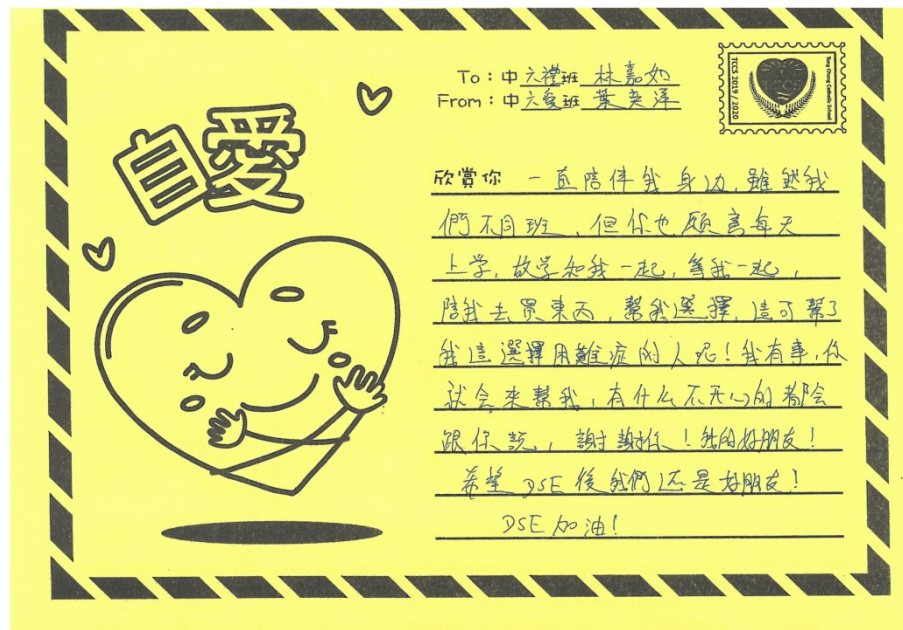 自愛
To：中六禮班 林嘉如
From：中六愛班 葉奕洋
Tung Chung Catholic School
TCCS 2019 / 2020
欣賞你 一直陪伴我身边，雖然我
們不同班，但你也愿意每天
上学，放学和我一起，等我一起，
陪我去買東西，幫我選擇，這可幫了
我這選擇困難症的人呢！我有事，你
就会来幫我，有什么不开心的都会
跟你説，謝謝你！我的好朋友！
希望DSE後我們还是好朋友！
DSE加油！